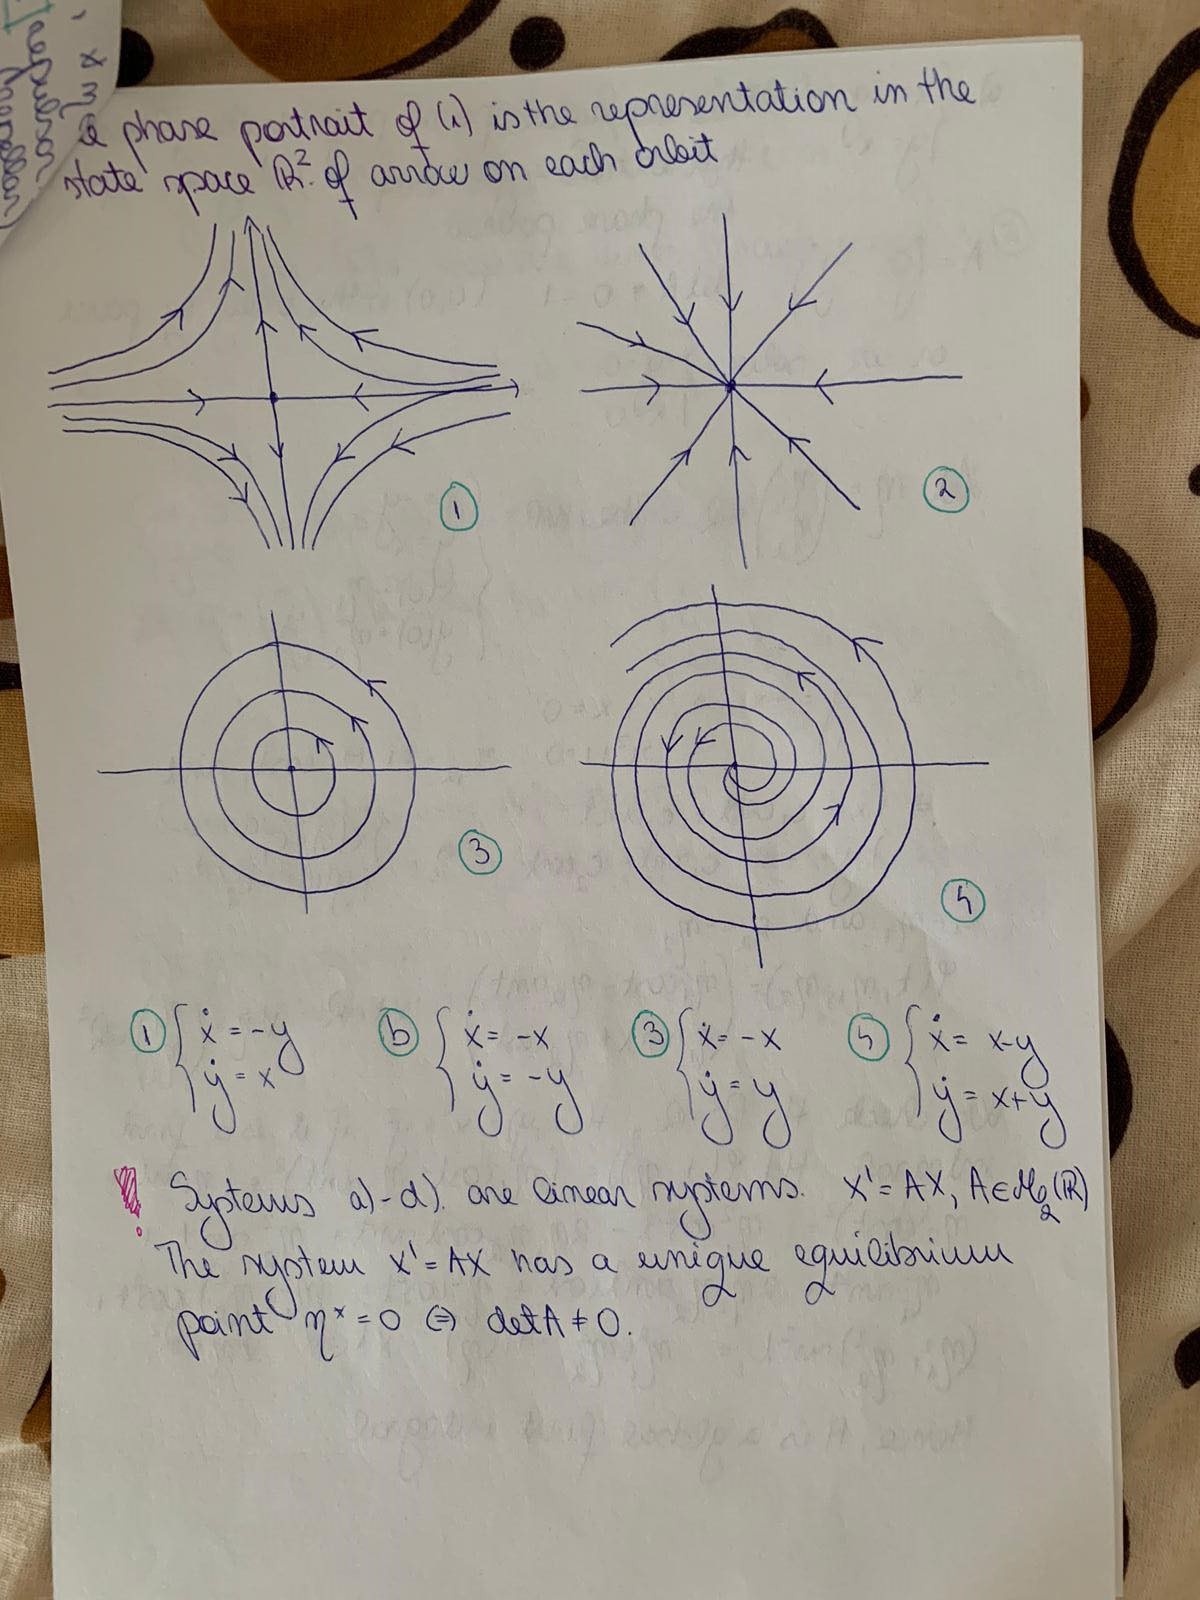 a phase portrait of (1) is the representation in the
state space ℝ² of arrow on each orbit
1
2
3
4
① { ẋ = -y
ẏ = x
ⓑ { ẋ = -x
ẏ = -y
③ { ẋ = -x
ẏ = y
④ { ẋ = x-y
ẏ = x+y
! Systems a)-d). are linear systems. X' = AX, A∈M₂(ℝ)
The system X' = AX has a unique equilibrium
point η* = 0 ⇔ detA ≠ 0.